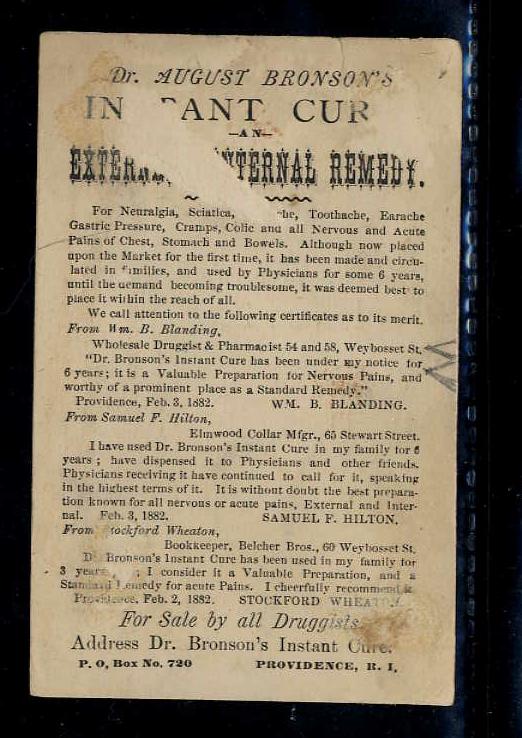 Dr. AUGUST BRONSON'S
IN ANT CUR
—AN—
INTERNAL REMEDY.
For Neuralgia, Sciatica, Toothache, Earache
Gastric Pressure, Cramps, Colic and all Nervous and Acute
Pains of Chest, Stomach and Bowels. Although now placed
upon the Market for the first time, it has been made and circu-
lated in families, and used by Physicians for some 6 years,
until the demand becoming troublesome, it was deemed best to
place it within the reach of all.
We call attention to the following certificates as to its merit.
From Wm. B. Blanding,
Wholesale Druggist & Pharmacist 54 and 58, Weybosset St.
"Dr. Bronson's Instant Cure has been under my notice for
6 years; it is a Valuable Preparation for Nervous Pains, and
worthy of a prominent place as a Standard Remedy."
Providence, Feb. 3, 1882. WM. B. BLANDING.
From Samuel F. Hilton,
Elmwood Collar Mfgr., 65 Stewart Street.
I have used Dr. Bronson's Instant Cure in my family for 6
years; have dispensed it to Physicians and other friends.
Physicians receiving it have continued to call for it, speaking
in the highest terms of it. It is without doubt the best prepara-
tion known for all nervous or acute pains, External and Inter-
nal. Feb. 3, 1882. SAMUEL F. HILTON.
From Stockford Wheaton,
Bookkeeper, Belcher Bros., 60 Weybosset St.
Bronson's Instant Cure has been used in my family for
3 years; I consider it a Valuable Preparation, and a
Standard Remedy for acute Pains. I cheerfully recommend it
Providence, Feb. 2, 1882. STOCKFORD WHEATON.
For Sale by all Druggists
Address Dr. Bronson's Instant Cure.
P. O, Box No. 720 PROVIDENCE, R. I.